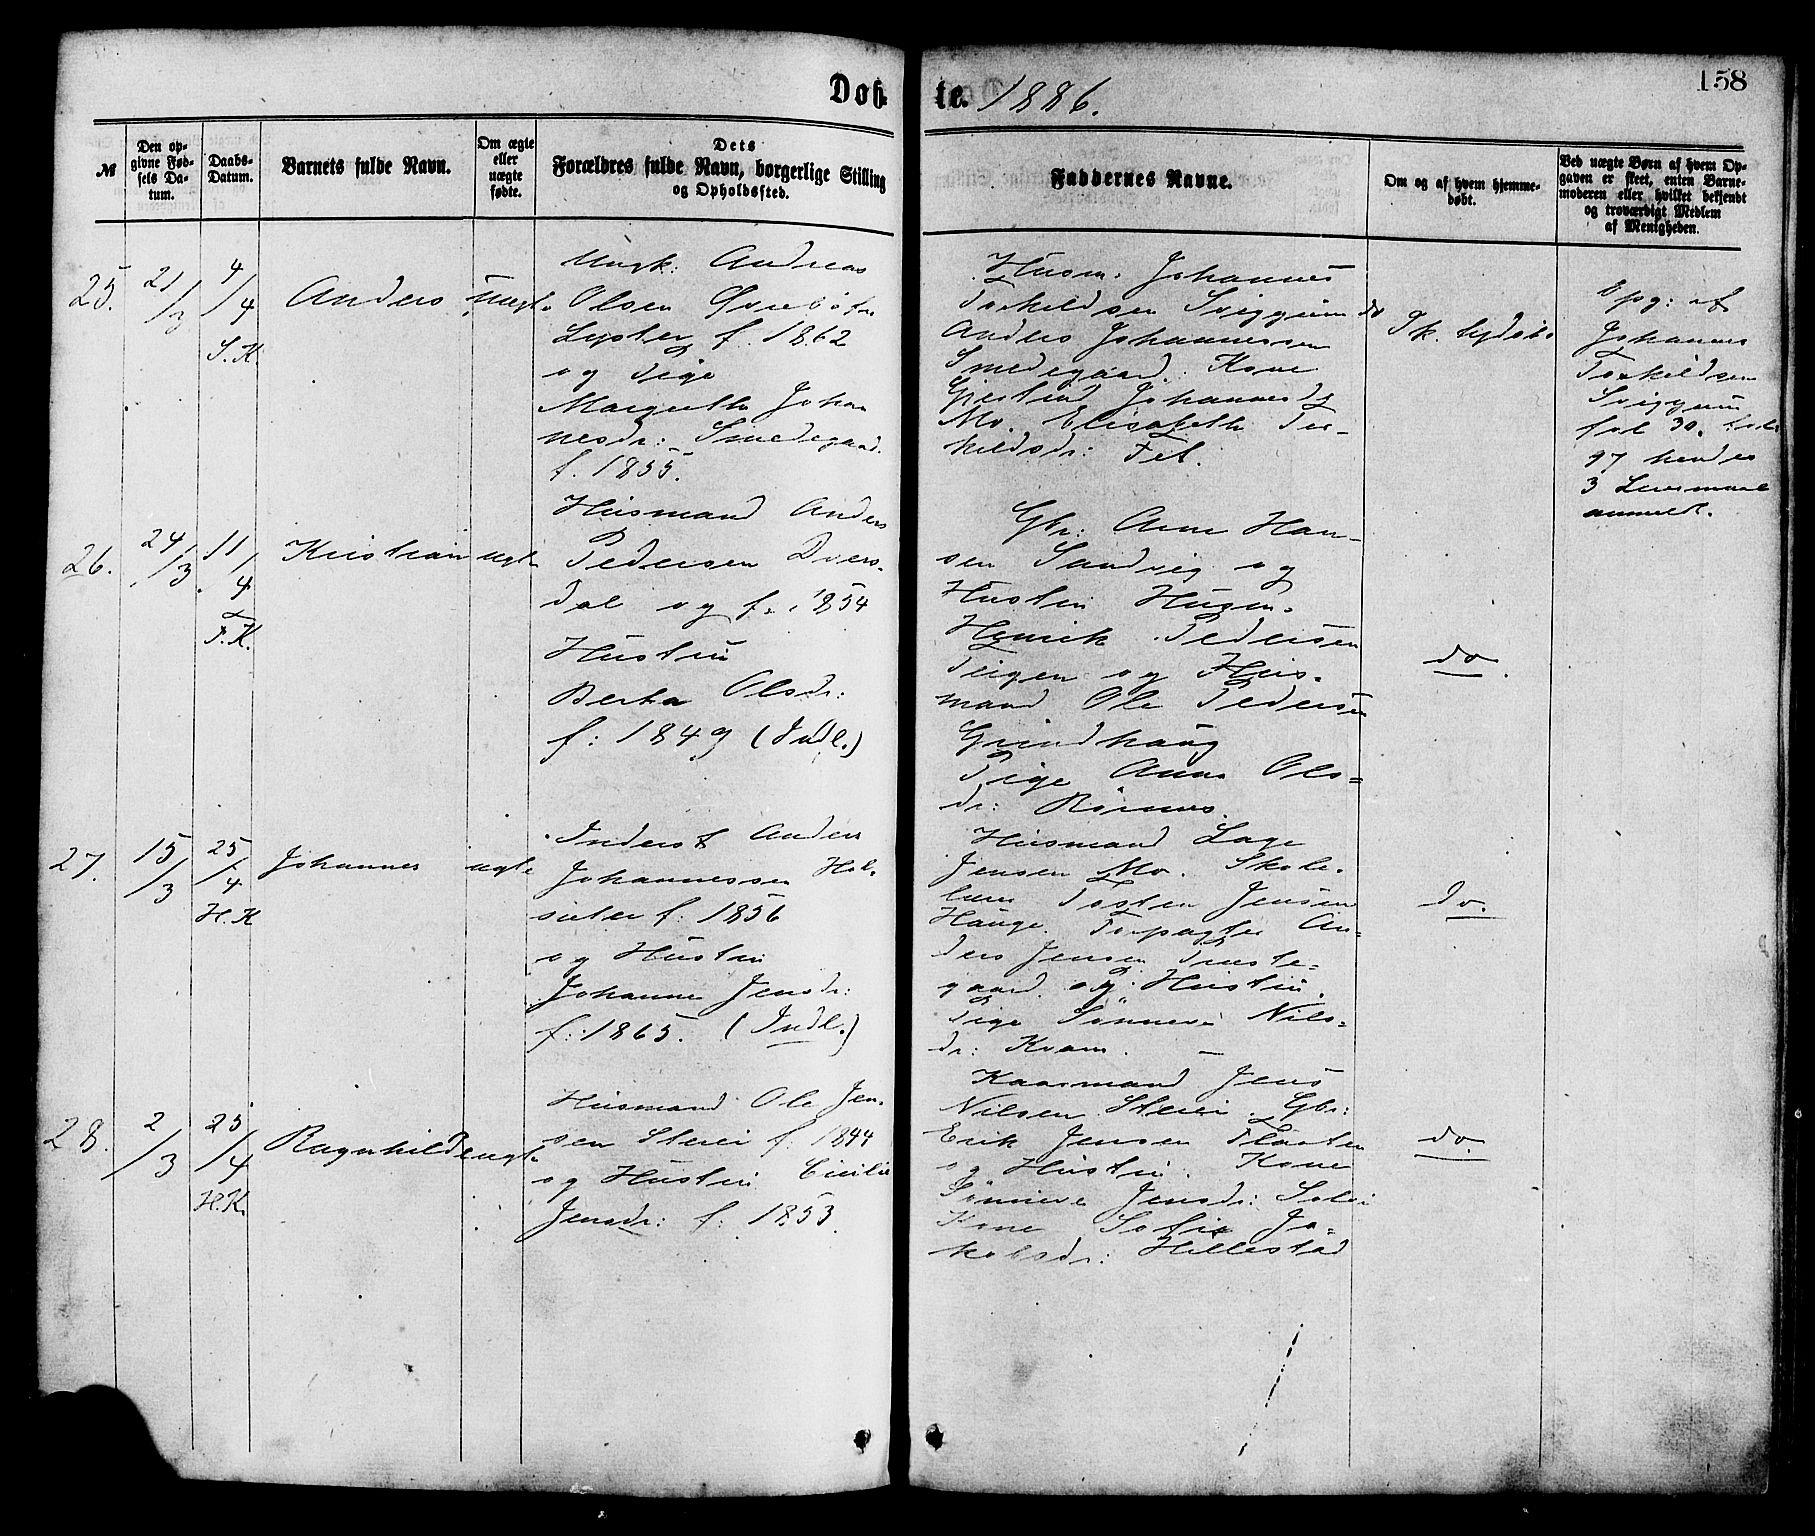 Døbte. 1886.
158
№
Den opgivne Fødsels Datum.
Daabs-Datum.
Barnets fulde Navn.
Om ægte eller uægte fødte.
Dets Forældres fulde Navn, borgerlige Stilling og Opholdssted.
Faddernes Navne.
Om og af hvem hjemmedøbt.
Ved uægte Børn af hvem Opgaven er skeet, enten Barnemoderen eller hvilket bekjendt og troværdigt Medlem af Menigheden.
25.
21/3
4/4
S.K.
Anders
Uægt.
Ungk: Andreas
Olsen
Lyster f. 1862
og Pige
Margrethe Johan
nesdr: Smedegaard.
f. 1855.
Husm. Johannes
Torkildsen Sviggum
Anders Johannessen
Smedegaard. Kone
Gjertrud Johannesdr
Mo. Elisabeth Tor-
kildsdr: Fet.
Opg: af
Johannes
Torkildsen
Sviggum
fol 30.
97 hendes
3 Leiermaal
anmeldt.
26.
24/3
11/4
F.K.
Kristian
ægt.
Husmand Anders
Pedersen Dvers-
dal og f. 1854
Hustru
Berta Olsdr:
f: 1849 (Indl.)
Gbr: Arne Han-
sen Sandvig og
Hustru
Henrik Pedersen
Teigen og Hus-
mand Ole Pedersen
Grindhaug
Pige Anna Ols=
dr:
do
27.
15/3
25/4
H.K
Johannes
ægte
Inderst Anders
Johannessen Hel-
seter f: 1856
og Hustru
Johanne Jensdr:
f: 1865. (Indl.)
Husmand Lage
Jensen Mo. Skole-
lærer Tosten Jensen
Hauge. Forpagter An-
ders Jensen Preste=
gaard. og Hustru.
Pige Sønneve Nils=
dr: Kvam.
do.
28.
2/3
25/4
H.K.
Ragnhild
ægt.
Husmand Ole Jen-
sen Steie f: 1844
og Hustru Cicilie
Jensdr: f: 1853.
Kaarmand Jens
Nilsen Steie. Gbr:
Erik Jensen Flaaten
og Hustru. Kone
Sønneve Jensdr:
Kone Sofie Ja=
kobsdr: Hillestad
do.